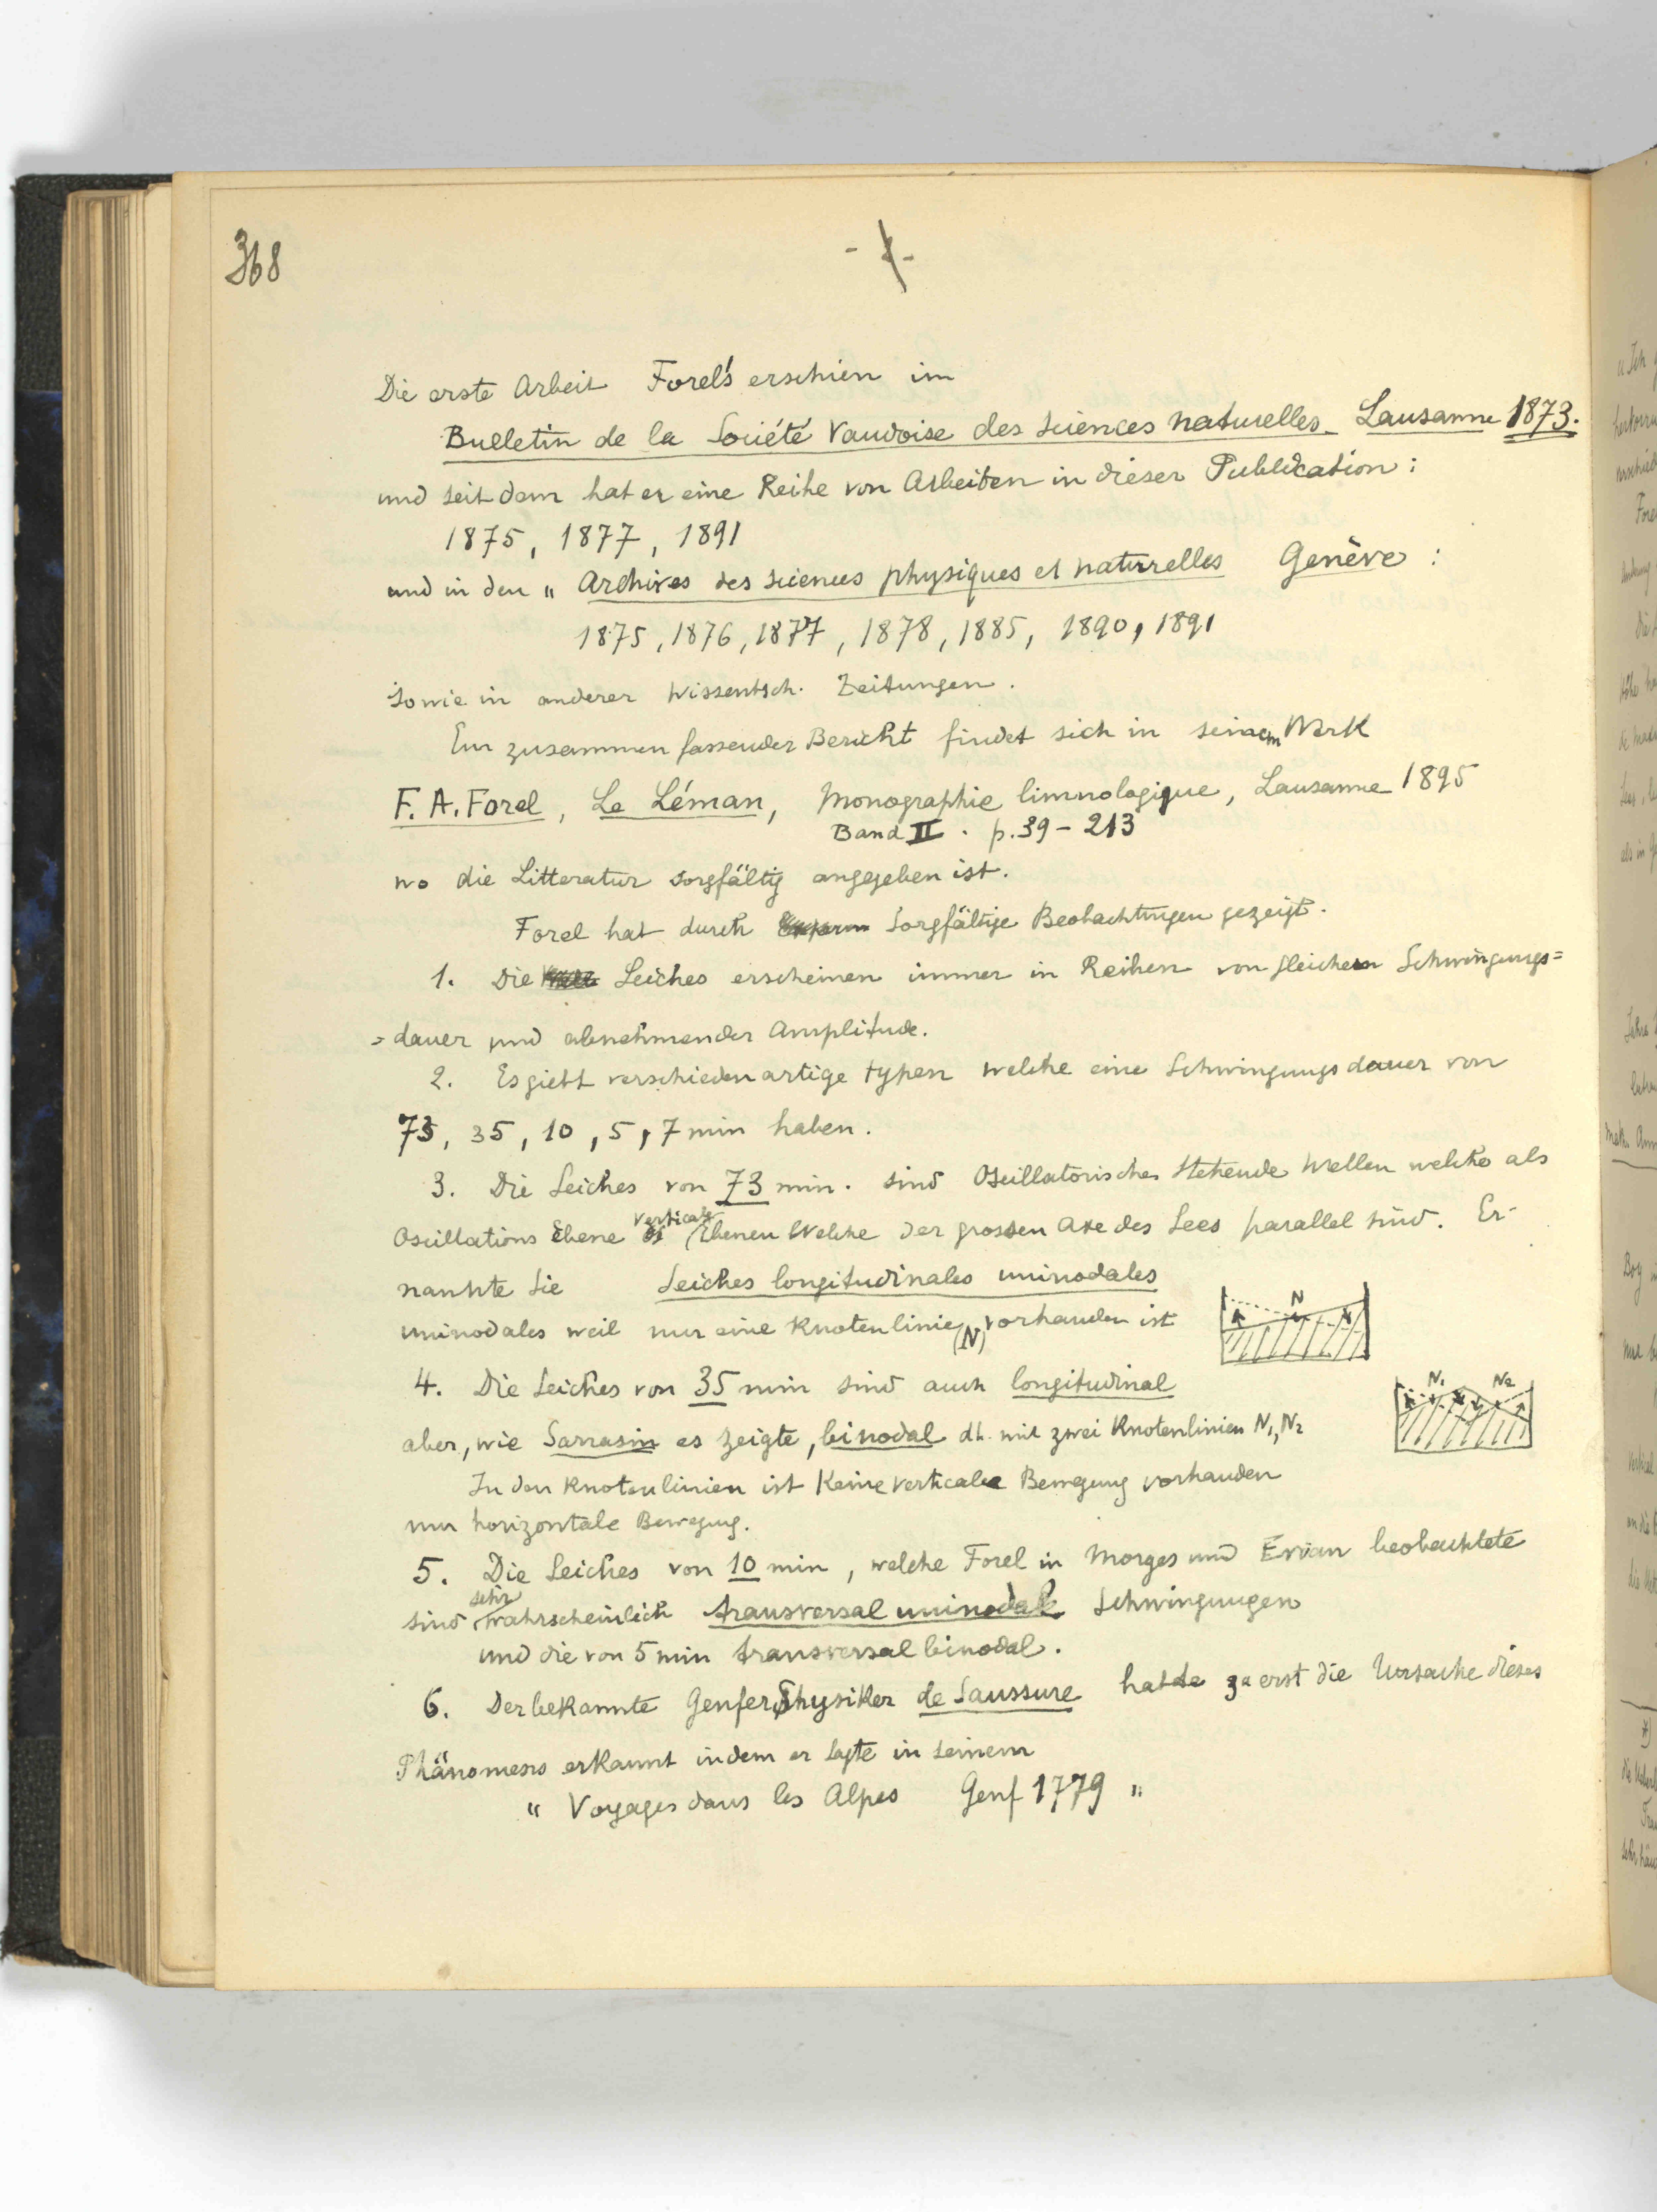 368
Die erste Arbeit Forel's erschien im
Bulletin de la Société Vaudoise des sciences naturelles Lausanne 1873.
und seit dem hat er eine Reihe von Arbeiten in dieser Publication:
1875, 1877, 1891
und in den „ Archives des sciences physiques et naturelles Genève :
1875, 1876, 1877, 1878, 1885, 1890, 1891
sowie in anderer wissentsch. Zeitungen.
Ein zusammen fassender Bericht findet sich in seinem Werk
F. A. Forel, Le Léman, Monographie limnologique, Lausanne 1895
Band II. p. 39 - 213
wo die Litteratur sorgfältig angegeben ist.
Forel hat durch sorgfältige Beobachtungen gezeigt.
1. Die Seiches erscheinen immer in Reihen von gleichen Schwingungs=
=dauer und abnehmender Amplitude.
2. Es giebt verschiedenartige typen welche eine Schwingungsdauer von
73, 35, 10, 5, 7 min haben.
3. Die Seiches von 73 min. sind Oscillatorische Stehende Wellen welche als
Oscillations Ebene verticale Ebenen Welche der grossen Axe des Sees parallel sind. Er
nannte sie Seiches longitudinales uninodales
uninodales weil nur eine Knotenlinie (N) vorhanden ist
N
4. Die Seiches von 35 min sind auch longitudinal
N1 N2
aber, wie Sarrasin es zeigte, binodal dh. mit zwei Knotenlinien N1, N2
In den Knotenlinien ist Keine verticale Bewegung vorhanden
nur horizontale Bewegung.
5. Die Seiches von 10 min, welche Forel in Morges und Evian beobachtete
sind sehr wahrscheinlich transversal uninodale Schwingungen
und die von 5 min transversal binodal.
6. Der bekannte Genfer Physiker de Saussure hatte zuerst die Ursache dieses
Phänomens erkannt indem er sagte in seinem
„ Voyages dans les Alpes Genf 1779 "